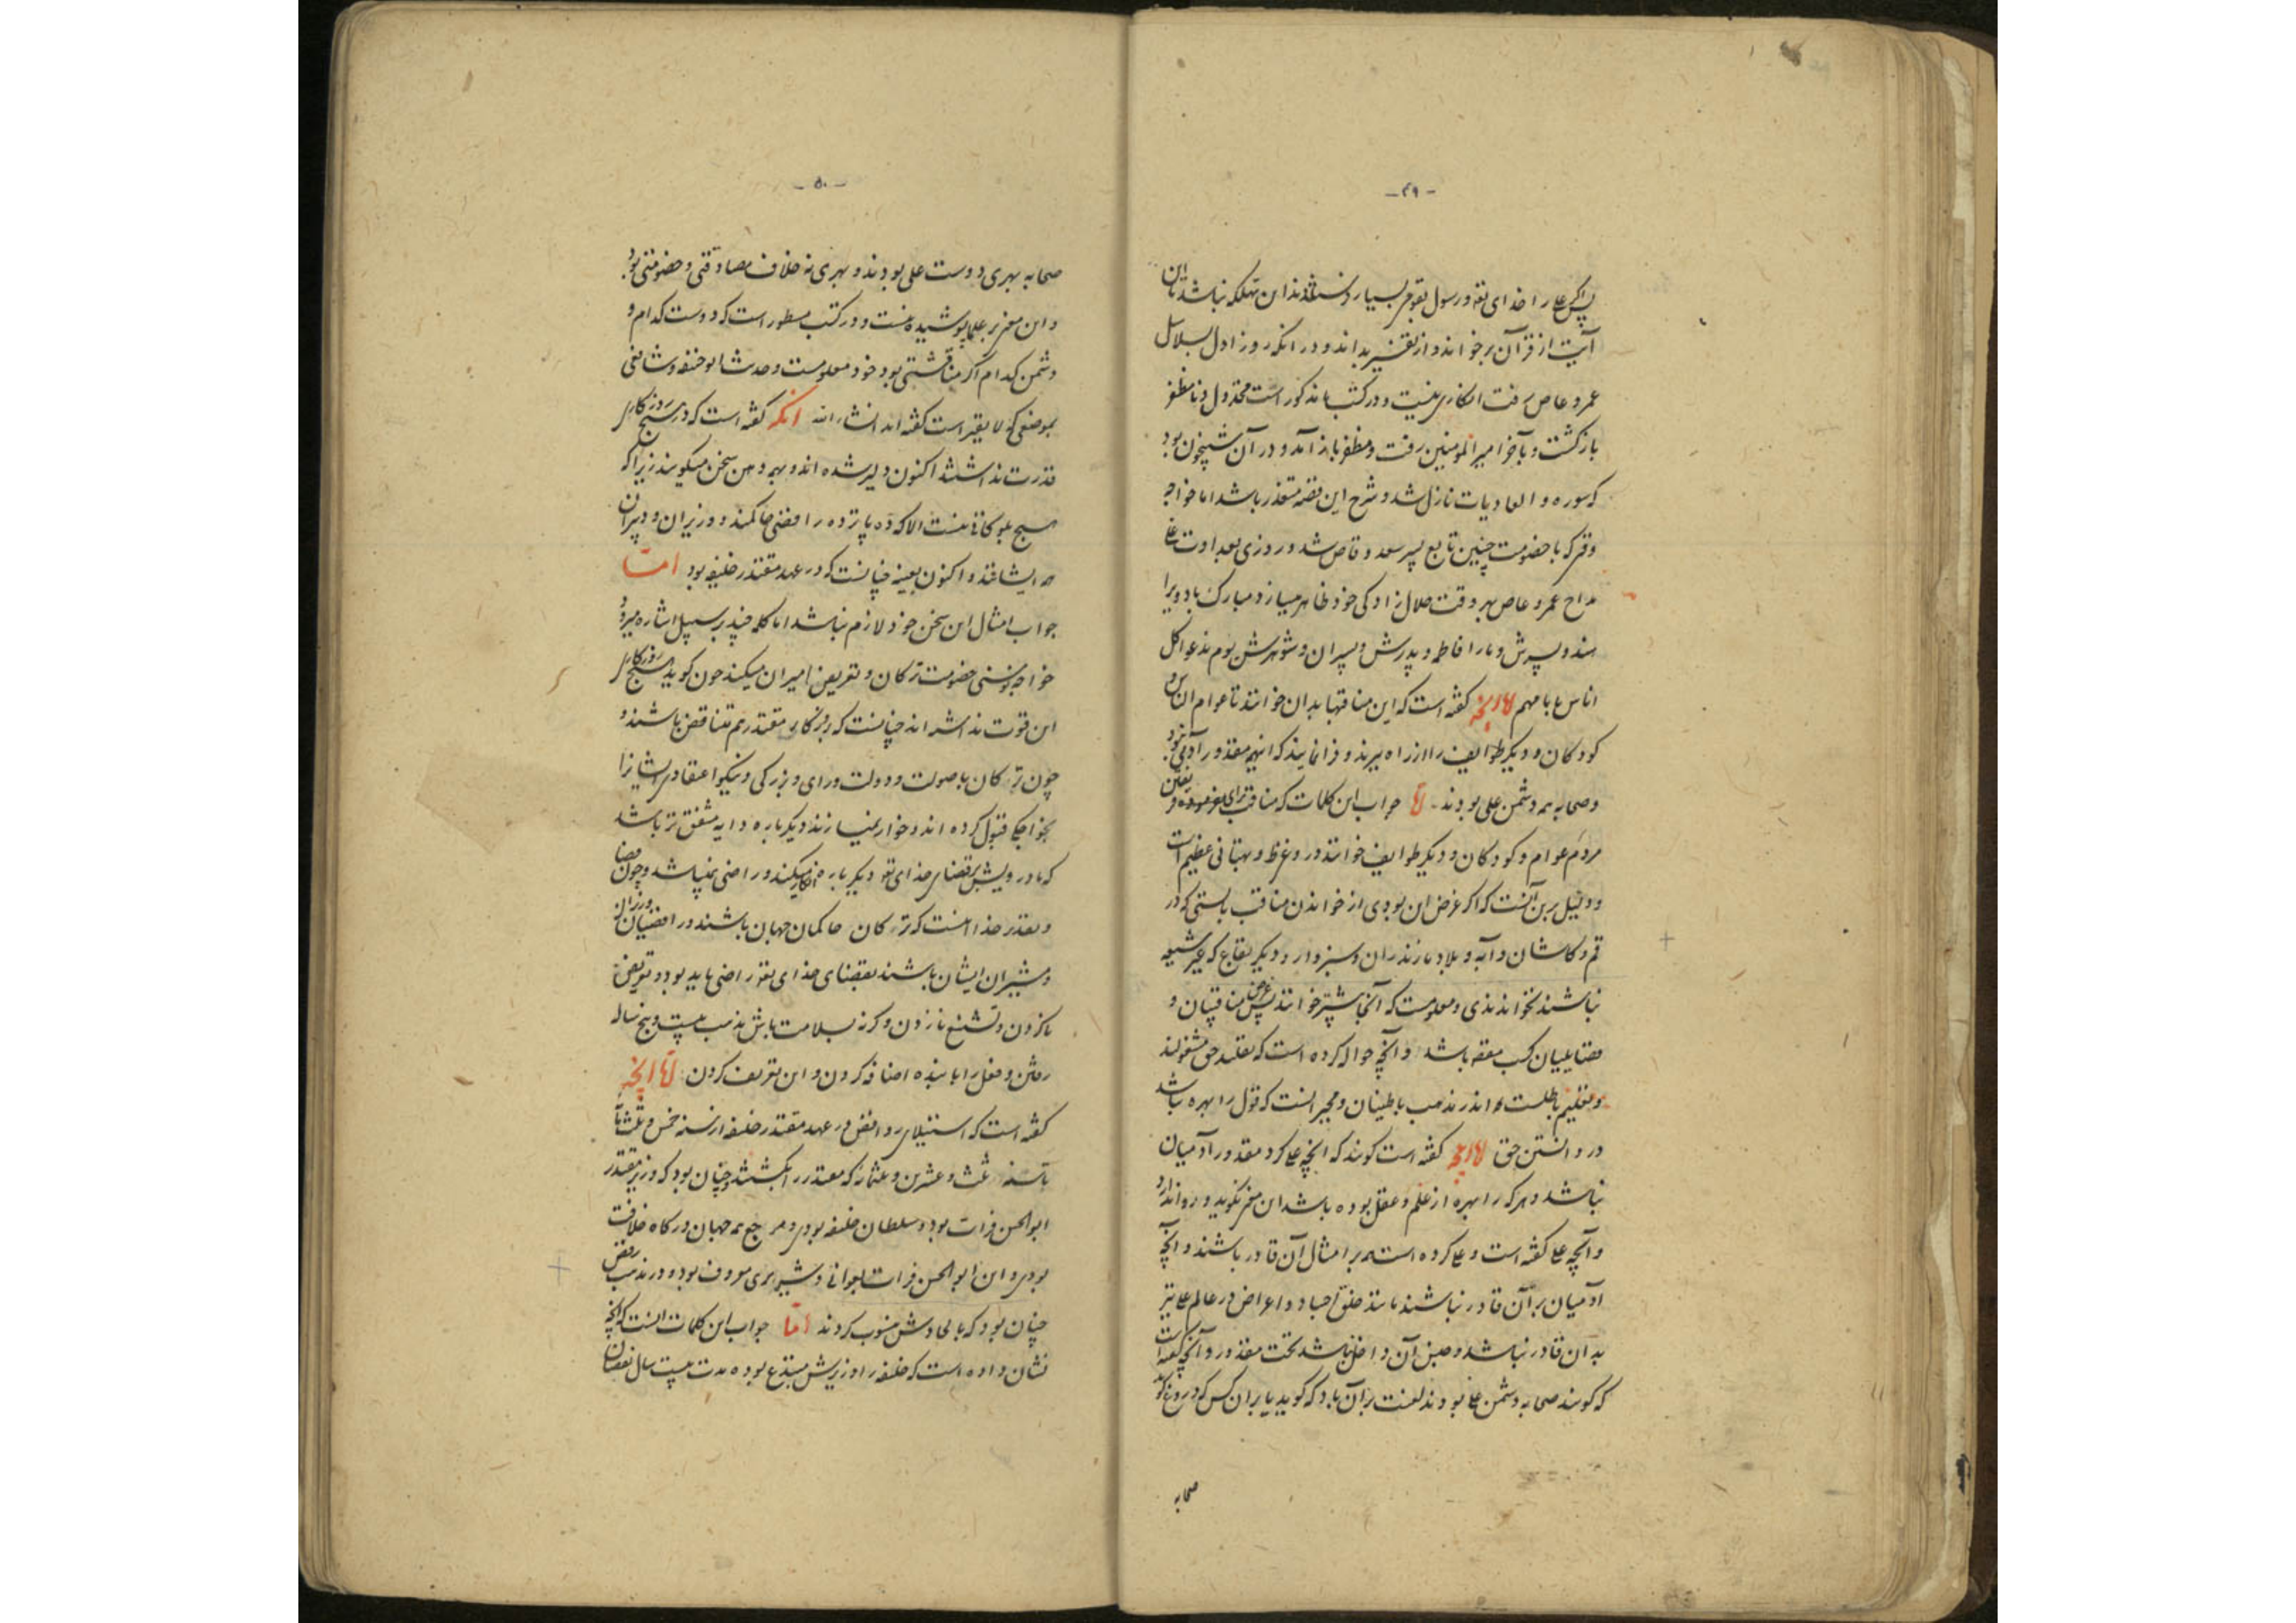 -۴۹-
پس اگر علی را خدای تعالی و رسول بقومی بسیار فرستادند این تهلکه نباشد تا این
آیت از قرآن برخواند و از تفسیر بداند و در آنکه روز اول بسلاسل
عمرو عاص رفت انکاری نیست و در کتب ما مذکور است مخذول و نامظفر
بازگشت و بآخر امیرالمومنین رفت و مظفر باز آمد و در آن شبیخون بود
که سوره والعادیات نازل شد و شرح این قصه متعذر باشد اما خواجه
وقتی که با خصومت چنین تابع پسر سعد وقاص شد و روزی بعداوت علی
مداح عمرو عاص بهر وقت حلال زادگی خود ظاهر میسازد مبارک باد ویرا
هند و پسرش و ما را فاطمه و پدرش و پسران و شوهرش یوم ندعوا کل
اناس بامامهم اما آنچه گفته است که این مناقبها بدان خوانند تا عوام الناس و
کودکان و دیگر طوایف را از راه ببرند و فرا نمایند که اینهمه مقدور آدمی نبود
و صحابه همه دشمن علی بودند اما جواب این کلمات که مناقب برای
مردم عوام و کودکان و دیگر طوایف خوانند دروغی و بهتانی عظیم است
و دلیل برین آنست که اگر غرض این بودی از خواندن مناقب بایستی که در
قم و کاشان و آبه و بلاد مازندران و سبزوار و دیگر بقاع که غیر شیعه
نباشند نخواندندی و معلومست که آنجا بیشتر خوانند پس غرض مناقبیان و
فضایلیان کسب معقه باشد و آنچه حواله کرده است که تقلید حق مشغولند
و تعلیم باطلست اندر مذهب باطنیان و مجبرانست که قول را بهره نباشد
در دانستن حق اما آنچه گفته است گویند که آنچه علی کرد مقدور آدمیان
نباشد و هر که را بهره از علم و عقل بوده باشد این سخن نگوید و روا ندارد
و آنچه علی گفته است و علی کرده است همه بر امثال آن قادر باشند و آنچه
آدمیان بر آن قادر نباشند مانند خلق اجساد و اعراض در عالم علی نیز
بدان قادر نباشد و جنس آن داخل نباشد تحت مقدور و آنچه گفته است
که گویند صحابه دشمن علی بودند لعنت بر آن باد که گوید یا بر آن کس که دروغ گوید
صحابه
-۵۰-
صحابه بهری دوست علی بودند و بهری نه خلاف مصادقتی و خصومتی بود
و این معنی بر علما پوشیده نیست و در کتب مسطور است که دوست کدام و
دشمن کدام اگر مناقشتی بود خود معلومست و حدیث ابوحنیفه و شافعی
بموضعی که لایقتر است گفته آید انشاء الله آنکه گفته است که در هیچ روزگاری
قدرت نداشتند اکنون دلیر شده اند و بهمه دهن سخن میگویند زیرا که
هیچ بلوکانی نیست الا که ده پانزده رافضی حاکمند و وزیران و دبیران
هم ایشانند و اکنون بعینه چنانست که در عهد مقتدر خلیفه بود اما
جواب امثال این سخن خود لازم نباشد اما کلمه چند بر سبیل اشاره میرود
خواجه بوسنی خصومت ترکان و تعریض امیران میکند چون گوید هیچ روزگاری
این قوت نداشته اند چنانست که بروزگار مقتدر هم متناقض باشند و
چون ترکان با صولت و دولت و رای و بزرگی و نیکو اعتقادی ایشانرا
بخواجگی قبول کرده اند و خوار نمیسازند دیگر باره دایه مشفق تر باشد
که مادر و بیش بر قضای خدای تعالی دیگر باره انکار میکند و راضی نمیباشد و چون قضا
و تقدیر خدا اینست که ترکان حاکمان جهان باشند و رافضیان وزیران
و مشیران ایشان باشند بقضای خدای تعالی راضی باید بود و تعریض
ناکردن و تشنیع نازدن و گرنه بسلامت باش مذهب بیست و پنج ساله
رفتن و فعل را با بنده اضافه کردن و این تعریف کردن اما آنچه
گفته است که استیلای روافض در عهد مقتدر خلیفه از سنه خمس و ثلثمائه
تا سنه ثلث و عشرین و ثلثمائه که مقتدر را بکشتند و چنان بود که وزیر مقتدر
ابوالحسن فرات بود و سلطان خلیفه بودی و مرجع همه جهان درگاه خلافت
بودی و این ابوالحسن فرات بعوانی و شریری معروف بود و در مذهب رفض
چنان بود که بالحادش منسوب کردند اما جواب این کلمات آنست که آنچه
نشان داده است که خلیفه را وزیرش مبتدع بوده مدت بیست سال نقصان